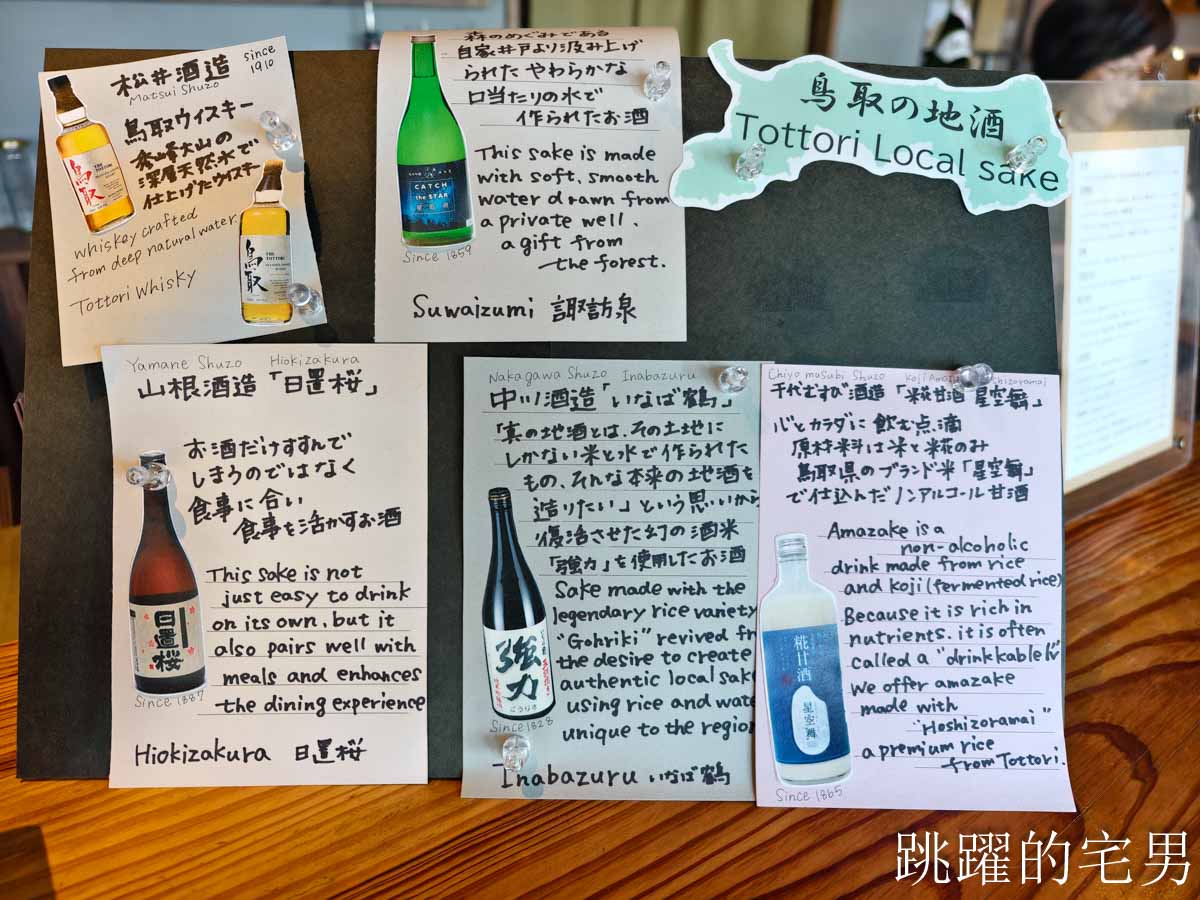 松井酒造
Matsui Shuzo
since
1910
鳥取ウィスキー
秀峰大山の
深層天然水で
仕上げたウイスキー
鳥取
鳥取
whiskey crafted
from deep natural water.
Tottori Whisky
森のめぐみである
自家井戸より汲み上げ
られた やわらかな
口当たりの水で
作られたお酒
CATCH
the STAR
Since 1859
This sake is made
with soft, smooth
water drawn from
a private well.
a gift from
the forest.
Suwaizumi 諏訪泉
鳥取の地酒
Tottori Local sake
Yamane Shuzo Hiokizakura
山根酒造「日置桜」
お酒だけすすんで
しまうのではなく
食事に合い
食事を活かすお酒
日置桜
Since 1887
This sake is not
just easy to drink
on its own, but it
also pairs well with
meals and enhances
the dining experience
Hiokizakura 日置桜
Nakagawa Shuzo Inabazuru
中川酒造「いなば鶴」
「真の地酒とは、その土地に
しかない米と水で作られた
もの、そんな本来の地酒を
造りたい」という思いから
復活させた幻の酒米
「強力」を使用したお酒
強力
ごうりき
Since 1828
Sake made with the
legendary rice variety
"Gohriki" revived fr
the desire to create
authentic local sak
using rice and wate
unique to the region
Inabazuru いなば鶴
Chiyo musubi Shuzo Koji Ama
千代むすび酒造「米糀甘酒 星空舞」
心とカラダに飲む点滴
原材料は米と糀のみ
鳥取県のブランド米「星空舞」
で仕込んだノンアルコール甘酒
糀甘酒
星空舞
Since 1865
Amazake is a
non-alcoholic
drink made from rice
and koji (fermented rice)
Because it is rich in
nutrients. it is often
called a "drinkkable IV"
We offer amazake
made with
"Hoshizoramai"
a premium rice
from Tottori.
跳躍的宅男